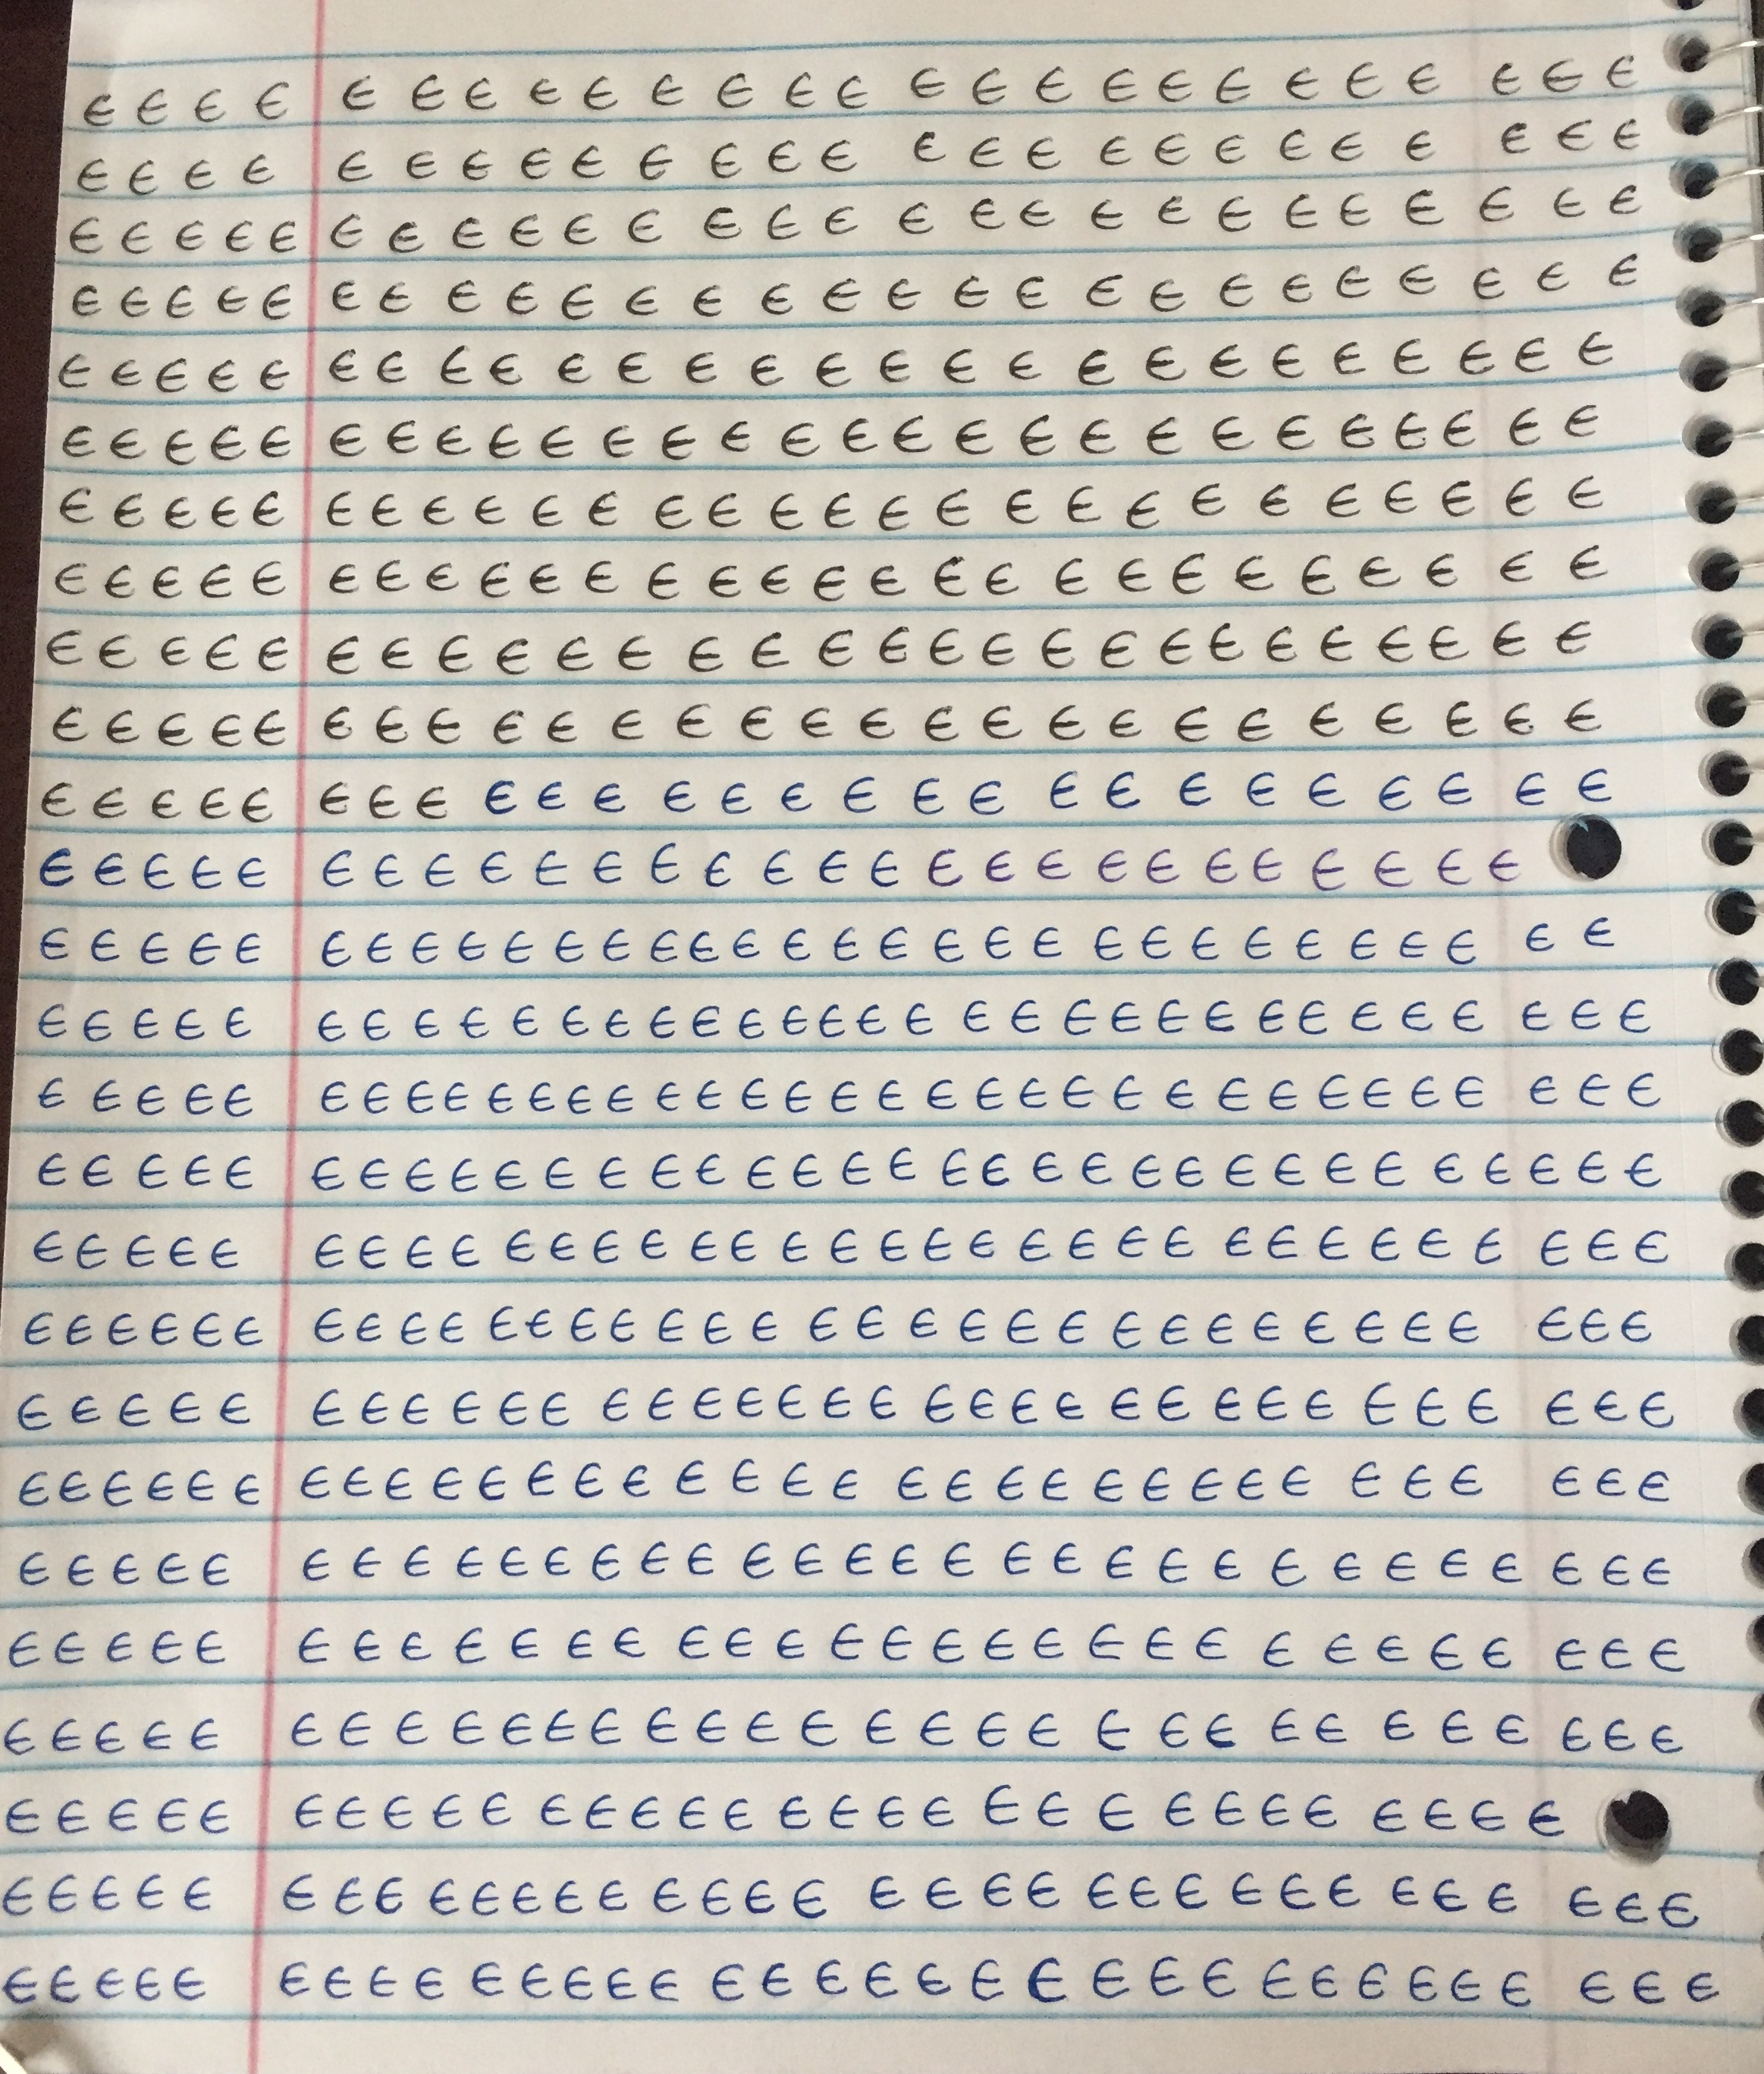 ϵ ϵ ϵ ϵ ϵ ϵ ϵ ϵ ϵ ϵ ϵ ϵ ϵ ϵ ϵ ϵ ϵ ϵ ϵ ϵ ϵ ϵ ϵ ϵ ϵ
ϵ ϵ ϵ ϵ ϵ ϵ ϵ ϵ ϵ ϵ ϵ ϵ ϵ ϵ ϵ ϵ ϵ ϵ ϵ ϵ ϵ ϵ ϵ ϵ ϵ
ϵ ϵ ϵ ϵ ϵ ϵ ϵ ϵ ϵ ϵ ϵ ϵ ϵ ϵ ϵ ϵ ϵ ϵ ϵ ϵ ϵ ϵ ϵ ϵ ϵ ϵ
ϵ ϵ ϵ ϵ ϵ ϵ ϵ ϵ ϵ ϵ ϵ ϵ ϵ ϵ ϵ ϵ ϵ ϵ ϵ ϵ ϵ ϵ ϵ ϵ ϵ ϵ
ϵ ϵ ϵ ϵ ϵ ϵ ϵ ϵ ϵ ϵ ϵ ϵ ϵ ϵ ϵ ϵ ϵ ϵ ϵ ϵ ϵ ϵ ϵ ϵ ϵ ϵ
ϵ ϵ ϵ ϵ ϵ ϵ ϵ ϵ ϵ ϵ ϵ ϵ ϵ ϵ ϵ ϵ ϵ ϵ ϵ ϵ ϵ ϵ ϵ ϵ ϵ ϵ ϵ
ϵ ϵ ϵ ϵ ϵ ϵ ϵ ϵ ϵ ϵ ϵ ϵ ϵ ϵ ϵ ϵ ϵ ϵ ϵ ϵ ϵ ϵ ϵ ϵ ϵ ϵ ϵ
ϵ ϵ ϵ ϵ ϵ ϵ ϵ ϵ ϵ ϵ ϵ ϵ ϵ ϵ ϵ ϵ ϵ ϵ ϵ ϵ ϵ ϵ ϵ ϵ ϵ ϵ ϵ
ϵ ϵ ϵ ϵ ϵ ϵ ϵ ϵ ϵ ϵ ϵ ϵ ϵ ϵ ϵ ϵ ϵ ϵ ϵ ϵ ϵ ϵ ϵ ϵ ϵ ϵ ϵ
ϵ ϵ ϵ ϵ ϵ ϵ ϵ ϵ ϵ ϵ ϵ ϵ ϵ ϵ ϵ ϵ ϵ ϵ ϵ ϵ ϵ ϵ ϵ ϵ ϵ ϵ
ϵ ϵ ϵ ϵ ϵ ϵ ϵ ϵ ϵ ϵ ϵ ϵ ϵ ϵ ϵ ϵ ϵ ϵ ϵ ϵ ϵ ϵ ϵ ϵ ϵ ϵ
ϵ ϵ ϵ ϵ ϵ ϵ ϵ ϵ ϵ ϵ ϵ ϵ ϵ ϵ ϵ ϵ ϵ ϵ ϵ ϵ ϵ ϵ ϵ ϵ ϵ ϵ ϵ
ϵ ϵ ϵ ϵ ϵ ϵ ϵ ϵ ϵ ϵ ϵ ϵ ϵ ϵ ϵ ϵ ϵ ϵ ϵ ϵ ϵ ϵ ϵ ϵ ϵ ϵ ϵ ϵ ϵ ϵ ϵ
ϵ ϵ ϵ ϵ ϵ ϵ ϵ ϵ ϵ ϵ ϵ ϵ ϵ ϵ ϵ ϵ ϵ ϵ ϵ ϵ ϵ ϵ ϵ ϵ ϵ ϵ ϵ ϵ ϵ ϵ ϵ ϵ ϵ
ϵ ϵ ϵ ϵ ϵ ϵ ϵ ϵ ϵ ϵ ϵ ϵ ϵ ϵ ϵ ϵ ϵ ϵ ϵ ϵ ϵ ϵ ϵ ϵ ϵ ϵ ϵ ϵ ϵ ϵ ϵ ϵ ϵ ϵ
ϵ ϵ ϵ ϵ ϵ ϵ ϵ ϵ ϵ ϵ ϵ ϵ ϵ ϵ ϵ ϵ ϵ ϵ ϵ ϵ ϵ ϵ ϵ ϵ ϵ ϵ ϵ ϵ ϵ ϵ ϵ ϵ ϵ
ϵ ϵ ϵ ϵ ϵ ϵ ϵ ϵ ϵ ϵ ϵ ϵ ϵ ϵ ϵ ϵ ϵ ϵ ϵ ϵ ϵ ϵ ϵ ϵ ϵ ϵ ϵ ϵ ϵ ϵ ϵ ϵ ϵ
ϵ ϵ ϵ ϵ ϵ ϵ ϵ ϵ ϵ ϵ ϵ ϵ ϵ ϵ ϵ ϵ ϵ ϵ ϵ ϵ ϵ ϵ ϵ ϵ ϵ ϵ ϵ ϵ ϵ ϵ ϵ ϵ ϵ ϵ
ϵ ϵ ϵ ϵ ϵ ϵ ϵ ϵ ϵ ϵ ϵ ϵ ϵ ϵ ϵ ϵ ϵ ϵ ϵ ϵ ϵ ϵ ϵ ϵ ϵ ϵ ϵ ϵ ϵ ϵ ϵ ϵ ϵ
ϵ ϵ ϵ ϵ ϵ ϵ ϵ ϵ ϵ ϵ ϵ ϵ ϵ ϵ ϵ ϵ ϵ ϵ ϵ ϵ ϵ ϵ ϵ ϵ ϵ ϵ ϵ ϵ ϵ ϵ ϵ ϵ ϵ
ϵ ϵ ϵ ϵ ϵ ϵ ϵ ϵ ϵ ϵ ϵ ϵ ϵ ϵ ϵ ϵ ϵ ϵ ϵ ϵ ϵ ϵ ϵ ϵ ϵ ϵ ϵ ϵ ϵ ϵ ϵ ϵ
ϵ ϵ ϵ ϵ ϵ ϵ ϵ ϵ ϵ ϵ ϵ ϵ ϵ ϵ ϵ ϵ ϵ ϵ ϵ ϵ ϵ ϵ ϵ ϵ ϵ ϵ ϵ ϵ ϵ ϵ ϵ
ϵ ϵ ϵ ϵ ϵ ϵ ϵ ϵ ϵ ϵ ϵ ϵ ϵ ϵ ϵ ϵ ϵ ϵ ϵ ϵ ϵ ϵ ϵ ϵ ϵ ϵ ϵ ϵ ϵ ϵ ϵ
ϵ ϵ ϵ ϵ ϵ ϵ ϵ ϵ ϵ ϵ ϵ ϵ ϵ ϵ ϵ ϵ ϵ ϵ ϵ ϵ ϵ ϵ ϵ ϵ ϵ ϵ ϵ ϵ ϵ ϵ
ϵ ϵ ϵ ϵ ϵ ϵ ϵ ϵ ϵ ϵ ϵ ϵ ϵ ϵ ϵ ϵ ϵ ϵ ϵ ϵ ϵ ϵ ϵ ϵ ϵ ϵ ϵ ϵ ϵ ϵ ϵ ϵ ϵ
ϵ ϵ ϵ ϵ ϵ ϵ ϵ ϵ ϵ ϵ ϵ ϵ ϵ ϵ ϵ ϵ ϵ ϵ ϵ ϵ ϵ ϵ ϵ ϵ ϵ ϵ ϵ ϵ ϵ ϵ ϵ ϵ ϵ